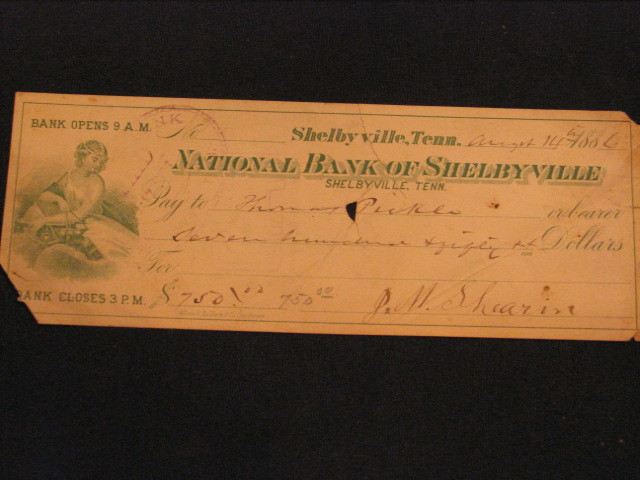 BANK OPENS 9 A.M.
No
Shelbyville, Tenn. August 14th 1886
NATIONAL BANK OF SHELBYVILLE
SHELBYVILLE, TENN.
Pay to Thomas or bearer
Seven hundred & fifty Dollars
For
BANK CLOSES 3 P.M.
$750.00 750.00
J. M. Shearin